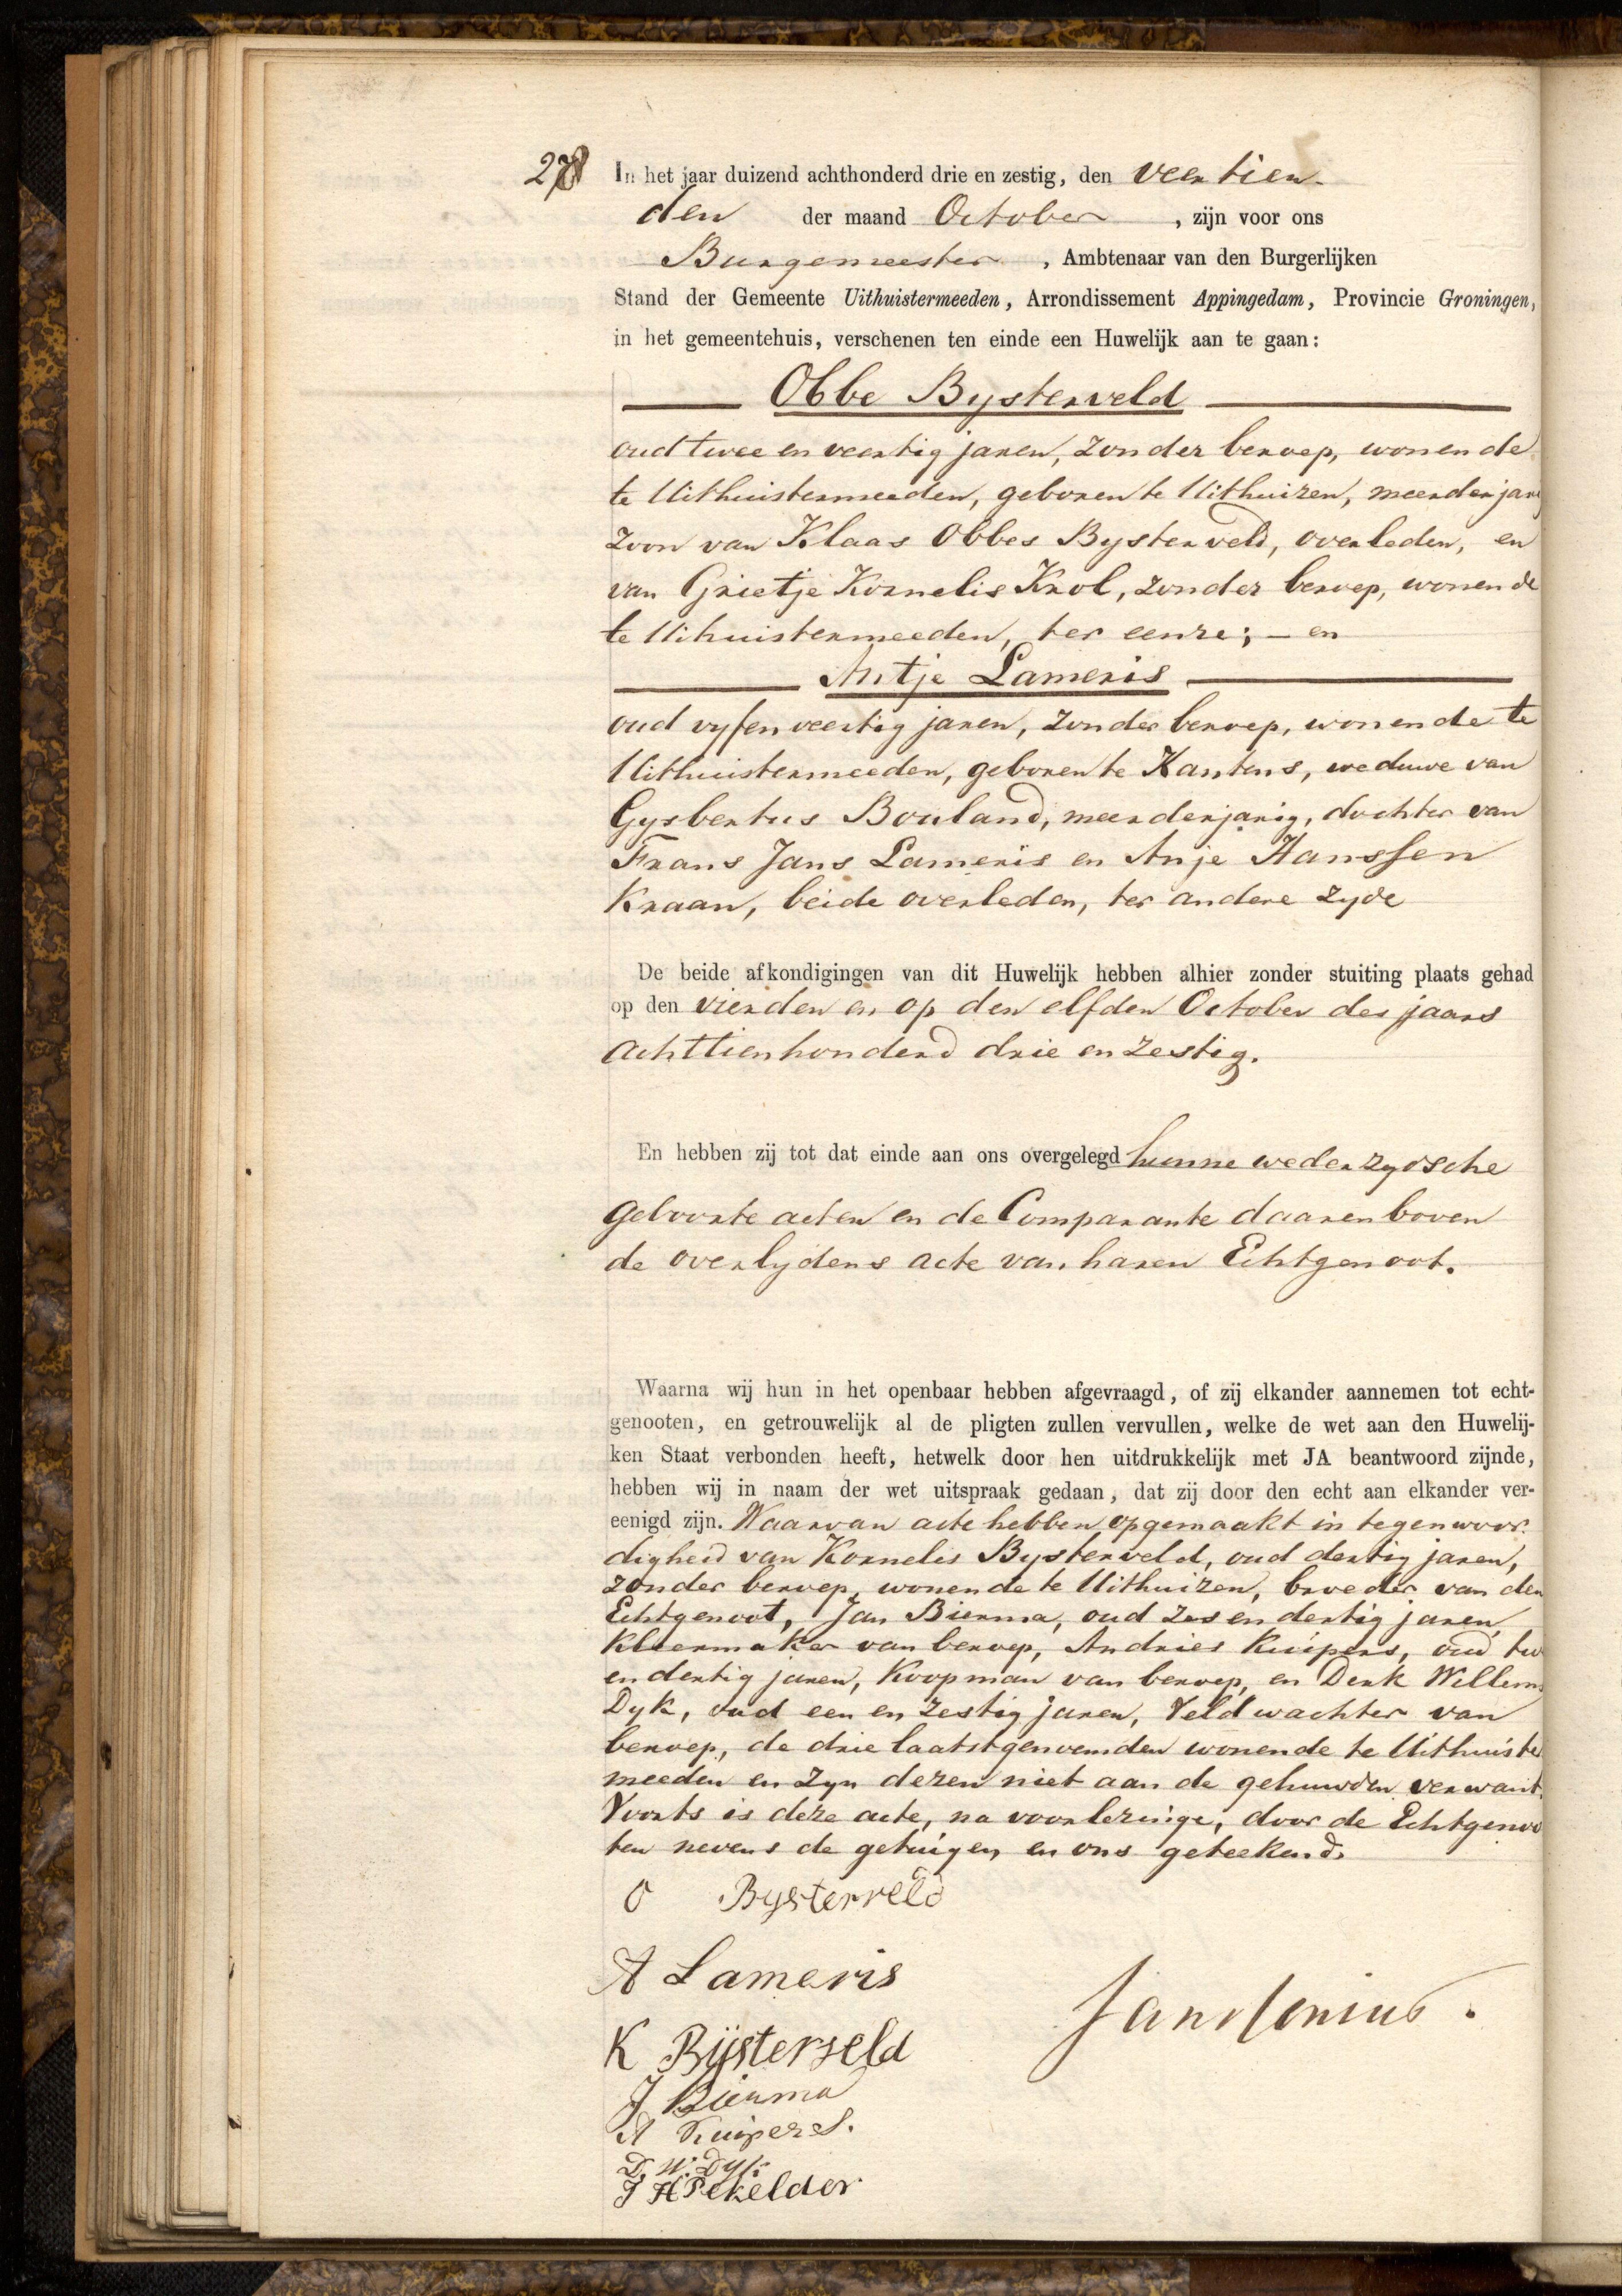 278 In het jaar duizend achthonderd drie en zestig, den veertien-
den der maand October, zijn voor ons
Burgemeester, Ambtenaar van den Burgerlijken
Stand der Gemeente Uithuistermeeden, Arrondissement Appingedam, Provincie Groningen,
in het gemeentehuis, verschenen ten einde een Huwelijk aan te gaan:
Obbe Bysterveld
oud twee en veertig jaren, zonder beroep, wonende
te Uithuistermeeden, geboren te Uithuizen, meerderjarig
zoon van Klaas Obbes Bysterveld, overleden, en
van Grietje Kornelis Krol, zonder beroep, wonende
te Uihuistermeeden, ter eenre; – en
Antje Lameris
oud vyfenveertig jaren, zonder beroep, wonende te
Uithuistermeeden, geboren te Kantens, weduwe van
Gysbertus Bouland, meerderjarig, dochter van
Frans Jans Lameris en Anje Hanssen
Kraan, beide overleden, ter andere zyde
De beide afkondigingen van dit Huwelijk hebben alhier zonder stuiting plaats gehad
op den vierden en op den elfden October des jaars
achttienhonderd drie en zestig.
En hebben zij tot dat einde aan ons overgelegd hunne wederzydsche
geboorte acten en de Comparante daarenboven
de overlydens acte van haren Echtgenoot.
Waarna wij hun in het openbaar hebben afgevraagd, of zij elkander aannemen tot echt-
genooten, en getrouwelijk al de pligten zullen vervullen, welke de wet aan den Huwelij-
ken Staat verbonden heeft, hetwelk door hen uitdrukkelijk met JA beantwoord zijnde,
hebben wij in naam der wet uitspraak gedaan, dat zij door den echt aan elkander ver-
eenigd zijn. Waarvan acte hebben opgemaakt in tegenwoor-
digheid van Kornelis Bysterveld, oud dertig jaren,
zonder beroep, wonende te Uithuizen, broeder van den
Echtgenoot, Jan Bierma, oud zes en dertig jaren,
Kleermaker van beroep, Andries Kuipers, oud twe
en dertig jaren, Koopman van beroep, en Derk Willems
Dyk, oud een en zestig jaren, Veldwachter van
beroep, de drie laatstgenoemden wonende te Uithuiste
meeden en zyn dezen niet aan de gehuwden verwant.
Voorts is deze acte, na voorlezinge, door de Echtgenoo
ten nevens de getuigen en ons geteekend.
O Bysterveld
A Lameris
K Bijsterveld
J Bierma
A Kuipers.
D. W. Dyk
J H Pekelder